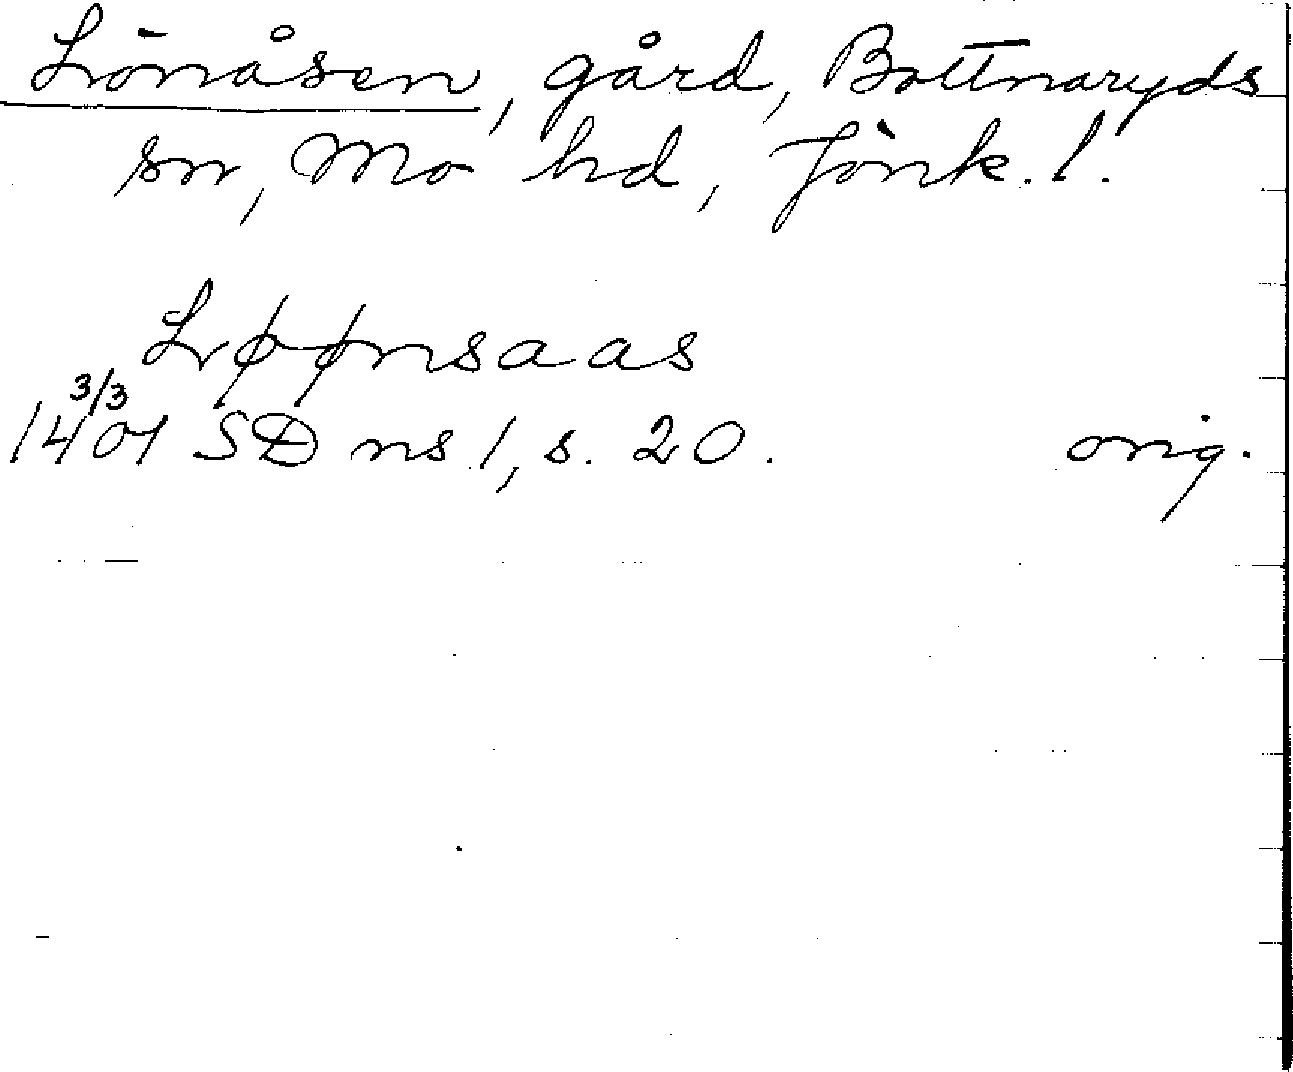 Lönåsen, gård, Bottnaryds
sn, Mo hd, Jönk. l.
Løønsaas
3/3
1401 SD ns 1, s. 20. orig.